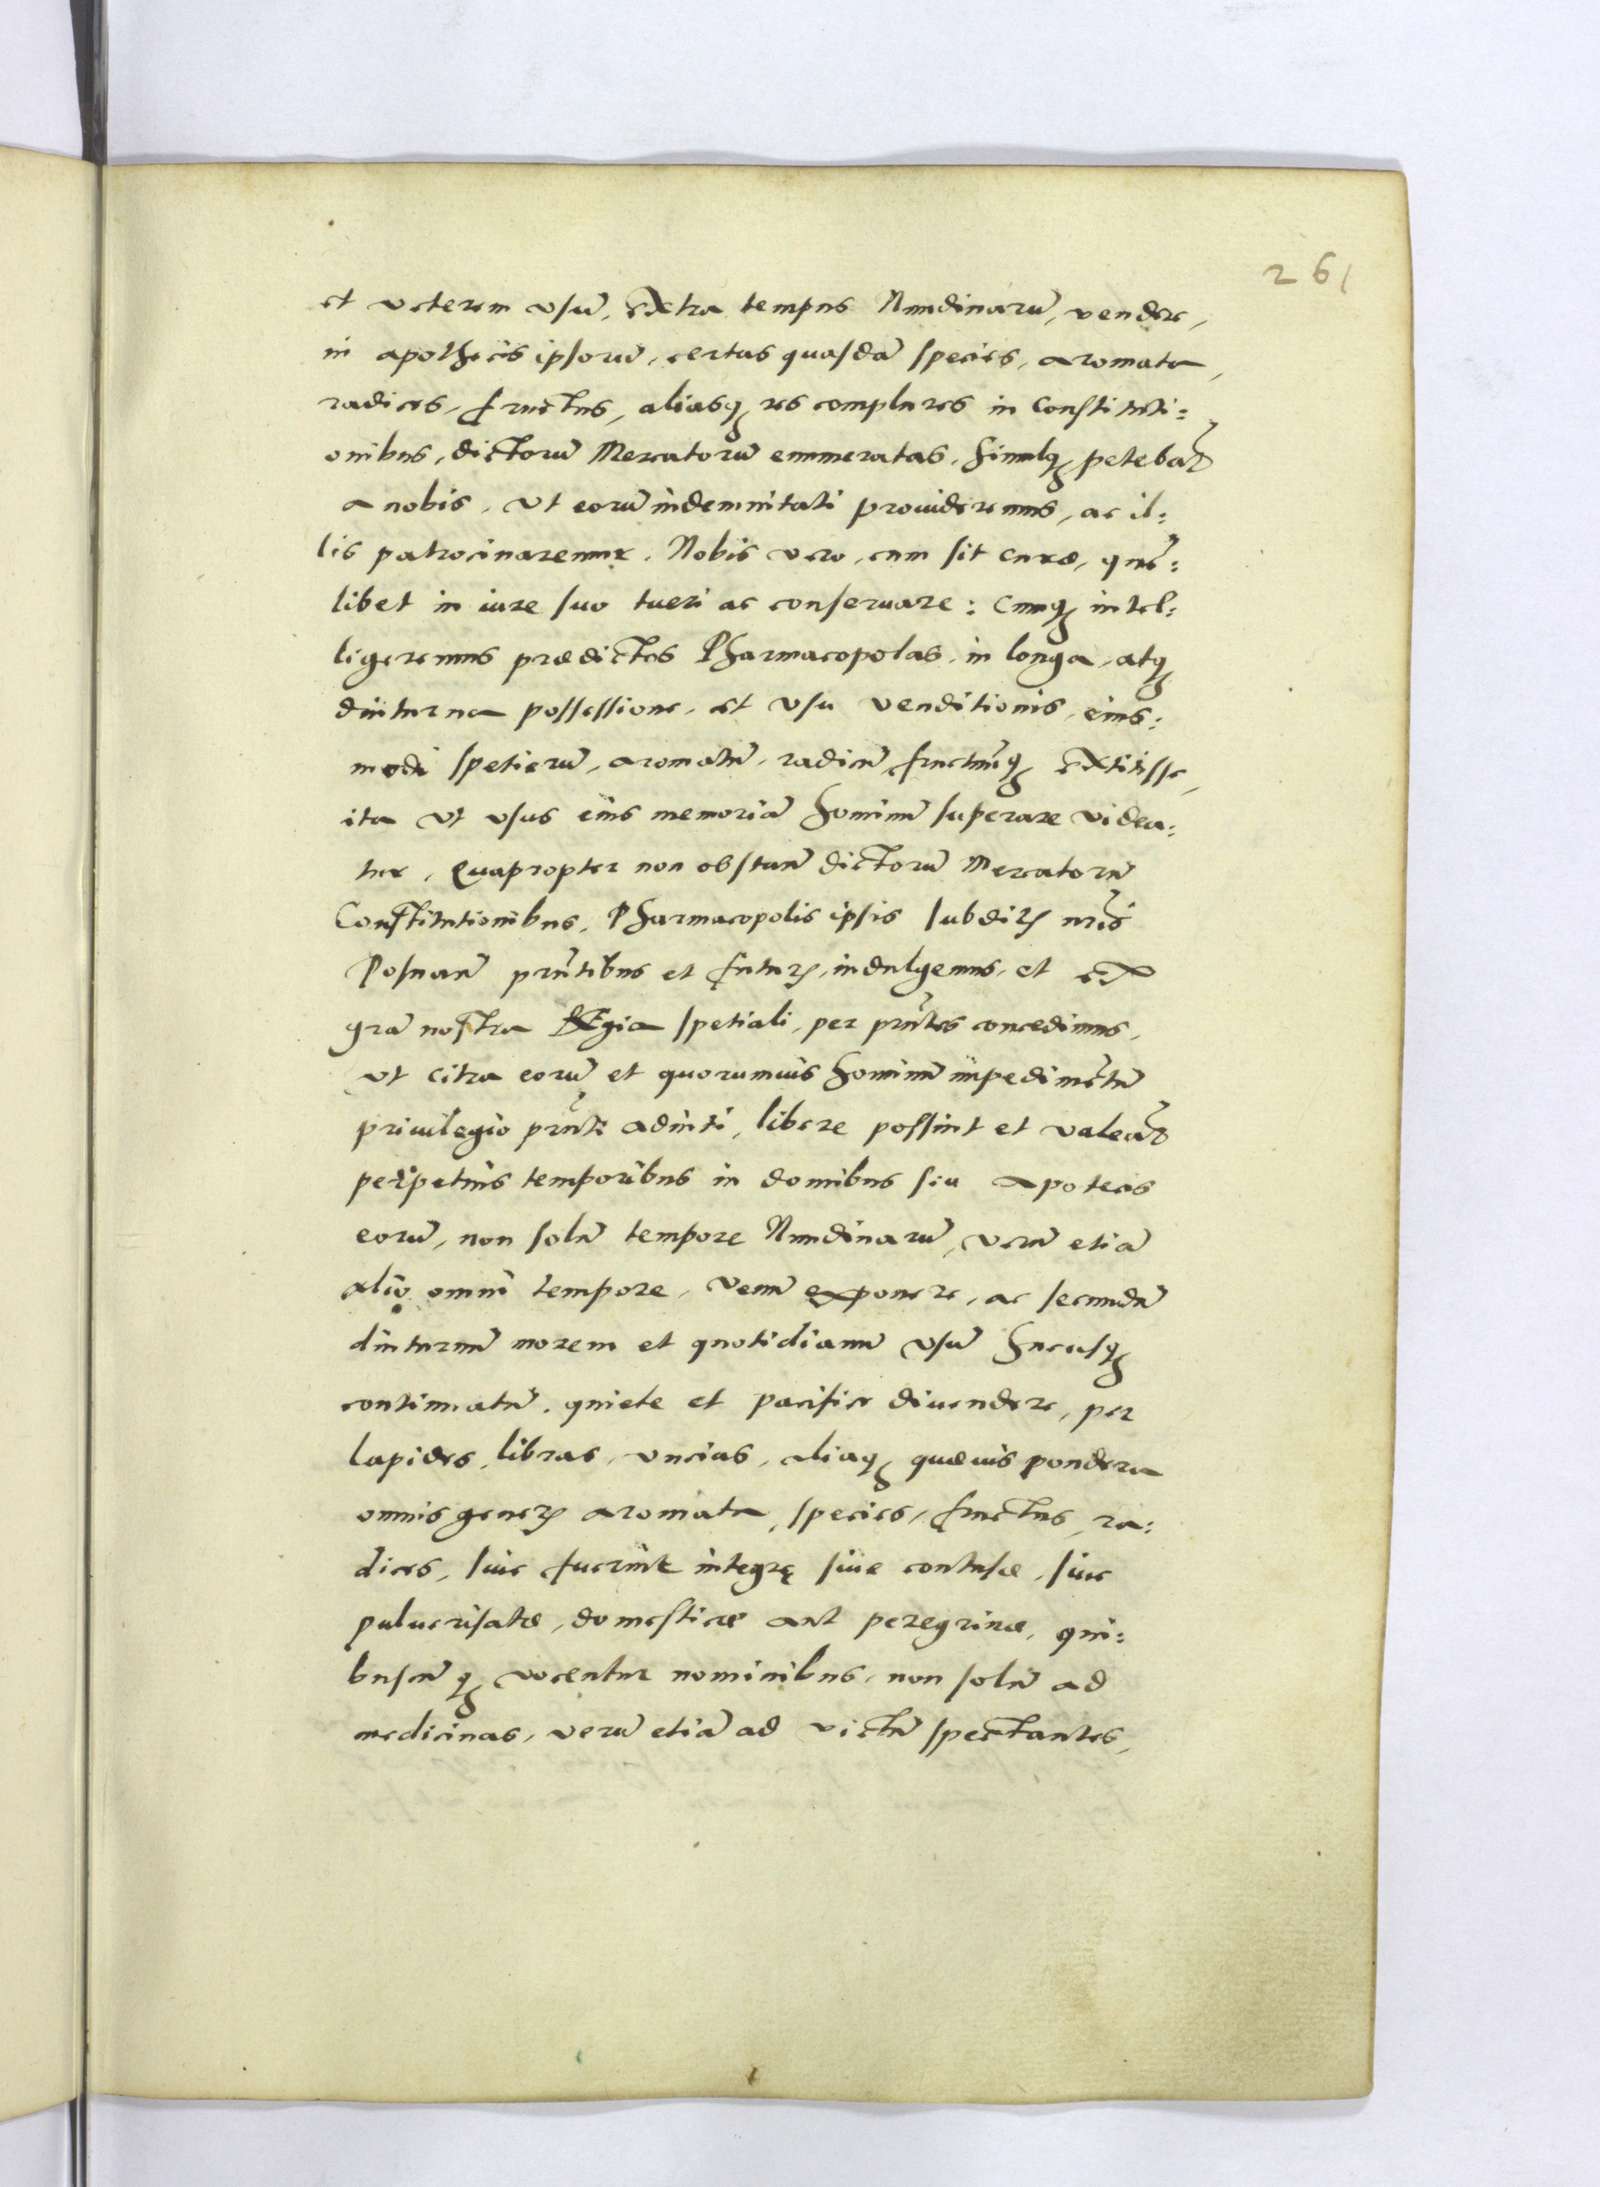 261
et veterem vsū, extra tempus Nundinarū, vendere,
in apothecis ipsorū, certas quasdā species, aromata,
radices, fructus, aliasq₃ res complures in Constituti:
onibus, dictorū Mercatorū enumeratas, simulq₃ petebāt
a nobis, vt eorū indemnitati prouideremus, ac il:
lis patrocinaremur. Nobis vero, cum sit curæ, quē:
libet in iure suo tueri ac conseruare: Cumq₃ intel:
ligeremus prædictos Pharmacopolas, in longa, atq₃
diuturna possessione, et vsu venditionis, eius:
modi spetierū, aromatū, radicū fructuūq₃ extitisse,
ita vt vsus eius memoriā hominū superare videa:
tur, Quapropter non obstan̄ dictorū Mercatorū
Constitutionibus, Pharmacopolis ipsis subditꝭ nr̄is
Posnan̄ prn̄tibus et futurꝭ, indulgemus, et ex
gr̄a nostra Regia spetiali, per prn̄tes concedimus,
vt citra eorū et quorumuis hominū impedimētū
priuilegio prn̄ti adiuti, libere possint et valeāt
perpetuis temporibus in domibus siu apotecis
eorū, non solū tempore Nundinarū, verū etiā
alio omni tempore, venū exponere, ac secundū
diuturnū morem et quotidianū vsū hucusq₃
continuatū, quiete et pacifice diuendere, per
lapides, libras, vncias, aliaq₃ quæuis pondera
omnis generꝭ aromata, species, fructus, ra:
dices, siue fuerint integrę siue contusæ, siue
puluerisatæ, domesticæ aut peregrinæ, qui:
buscū q₃ vocentur nominibus, non solū ad
medicinas, verū etiā ad victū spectantes,